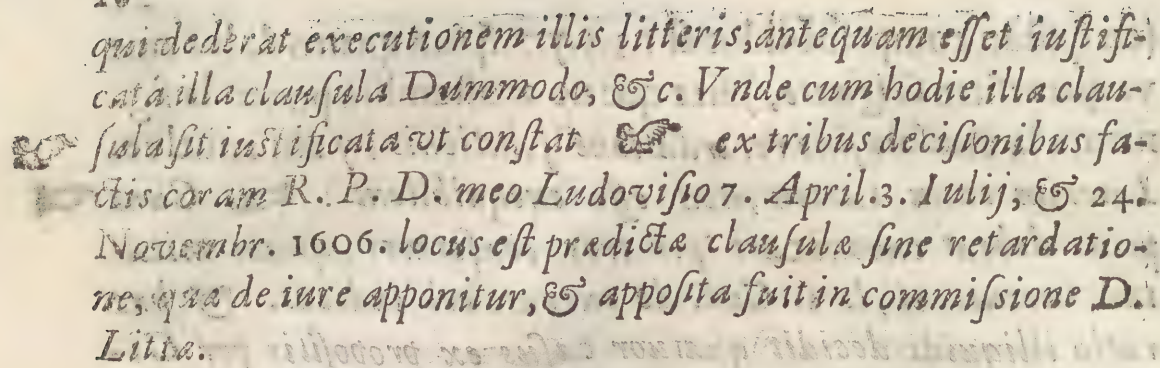 qui dederat executionem illis litteris, antequam eſſet iuſtifi-
cata illa clauſula Dummodo, &c. Vnde cum hodie illa clau-
☞ ſula ſit iuſtificata vt conſtat ☞ ex tribus deciſionibus fa-
ctis coram R. P. D. meo Ludoviſio 7. April. 3. Iulij, & 24.
Novembr. 1606. locus eſt prædictæ clauſulæ ſine retardatio-
ne, quæ de iure apponitur, & appoſita fuit in commiſsione D.
Littæ.